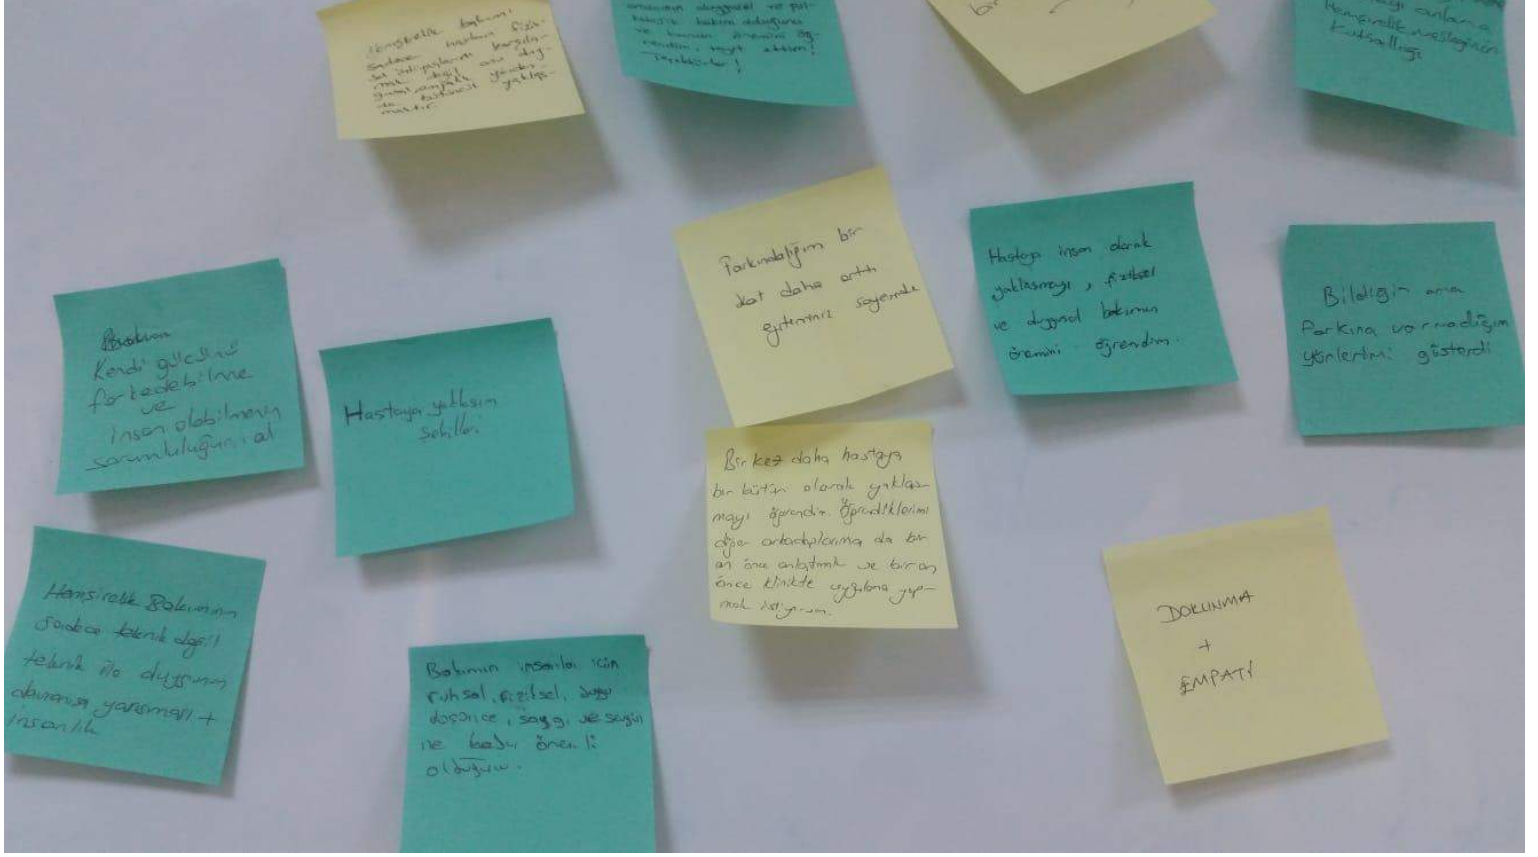 Hemşirelik bakımı
sadece hastanın fizik-
sel ihtiyaçlarını karşıla-
mak değil onu duy-
gusal, empatik yönden
de bütüncül yaklaş-
maktır.
duygusal ve psi-
kolojik bakım olduğunu
ve bunun önemini öğ-
rendim, teyit ettim!
Teşekkürler!
bir
anlama
Hemşirelik mesleğinin
Kutsallığı
Farkındalığım bir
kat daha arttı
eğitiminiz sayesinde
Hastaya insan olarak
yaklaşmayı, fiziksel
ve duygusal bakımın
önemini öğrendim.
Bildiğim ama
farkına varmadığım
yönlerimi gösterdi
Kendi gücünü
farkedebilme
ve
insan olabilmenin
sorumluluğunu al
Hastaya yaklaşım
Şekilleri
Bir kez daha hastaya
bir bütün olarak yaklaş-
mayı öğrendim. Öğrendiklerimi
diğer arkadaşlarıma da bir
an önce anlatmak ve bir an
önce klinikte uygulama yap-
mak istiyorum.
Hemşirelik Bakımının
sadece teknik değil
teknik ile duygunun
davranışa yansıması +
insanlık
Bakımın insanlar için
ruhsal, fiziksel, duygu
düşünce, saygı ve sevgi
ne kadar önemli
olduğunu.
DOKUNMA
+
EMPATİ